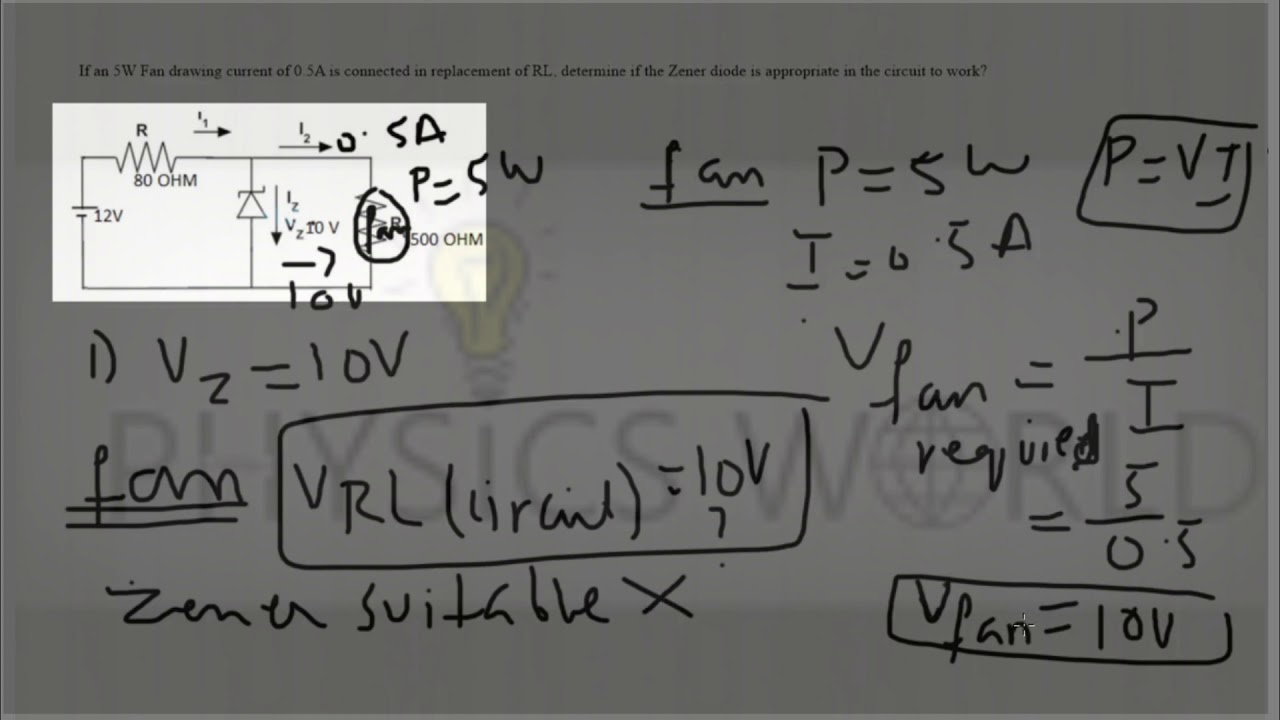 If an 5W Fan drawing current of 0.5A is connected in replacement of RL, determine if the Zener diode is appropriate in the circuit to work?
R
I1
I2
0.5A
80 OHM
P=5W
12V
Iz
Vz10 V
Fan
R
500 OHM
10V
fan P=5W
P=VI
I=0.5A
1) Vz=10V
V fan required = P/I
= 5/0.5
V fan = 10V
fan
VRL(circuit)=10V
?
Zener suitable X
PHYSICS WORLD